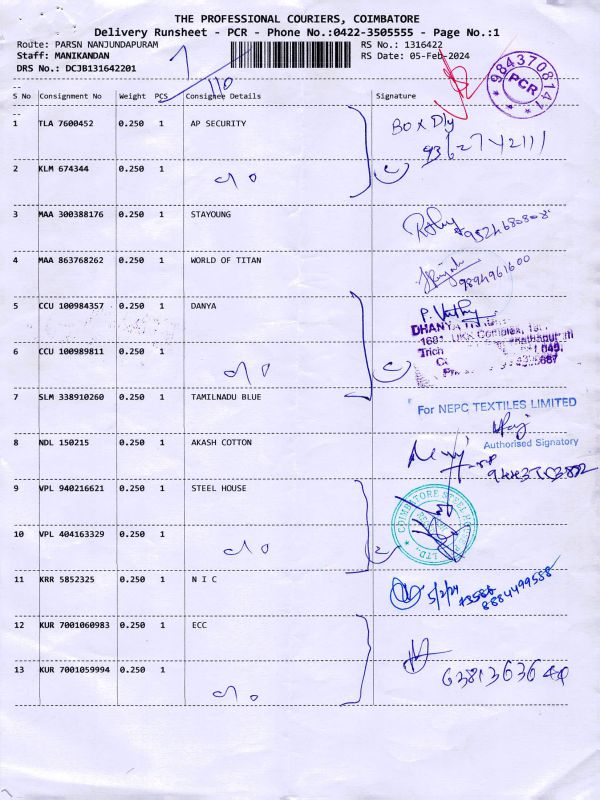 THE PROFESSIONAL COURIERS, COIMBATORE
Delivery Runsheet - PCR - Phone No.:0422-3505555 - Page No.:1
Route: PARSN NANJUNDAPURAM RS No.: 1316422
Staff: MANIKANDAN RS Date: 05-Feb-2024
DRS No.: DCJB131642201
110
9843708141
PCR
S No Consignment No Weight PCS Consignee Details Signature
1 TLA 7600452 0.250 1 AP SECURITY Box Dly
2 KLM 674344 0.250 1
3 MAA 300388176 0.250 1 STAYOUNG
4 MAA 863768262 0.250 1 WORLD OF TITAN
9894961600
5 CCU 100984357 0.250 1 DANYA
6 CCU 100989811 0.250 1
7 SLM 338910260 0.250 1 TAMILNADU BLUE
For NEPC TEXTILES LIMITED
Authorised Signatory
8 NDL 150215 0.250 1 AKASH COTTON
9 VPL 940216621 0.250 1 STEEL HOUSE
COIMBATORE STEEL HOUSE LTD.
10 VPL 404163329 0.250 1
11 KRR 5852325 0.250 1 N I C
5/2/24
8884499588
12 KUR 7001060983 0.250 1 ECC
13 KUR 7001059994 0.250 1